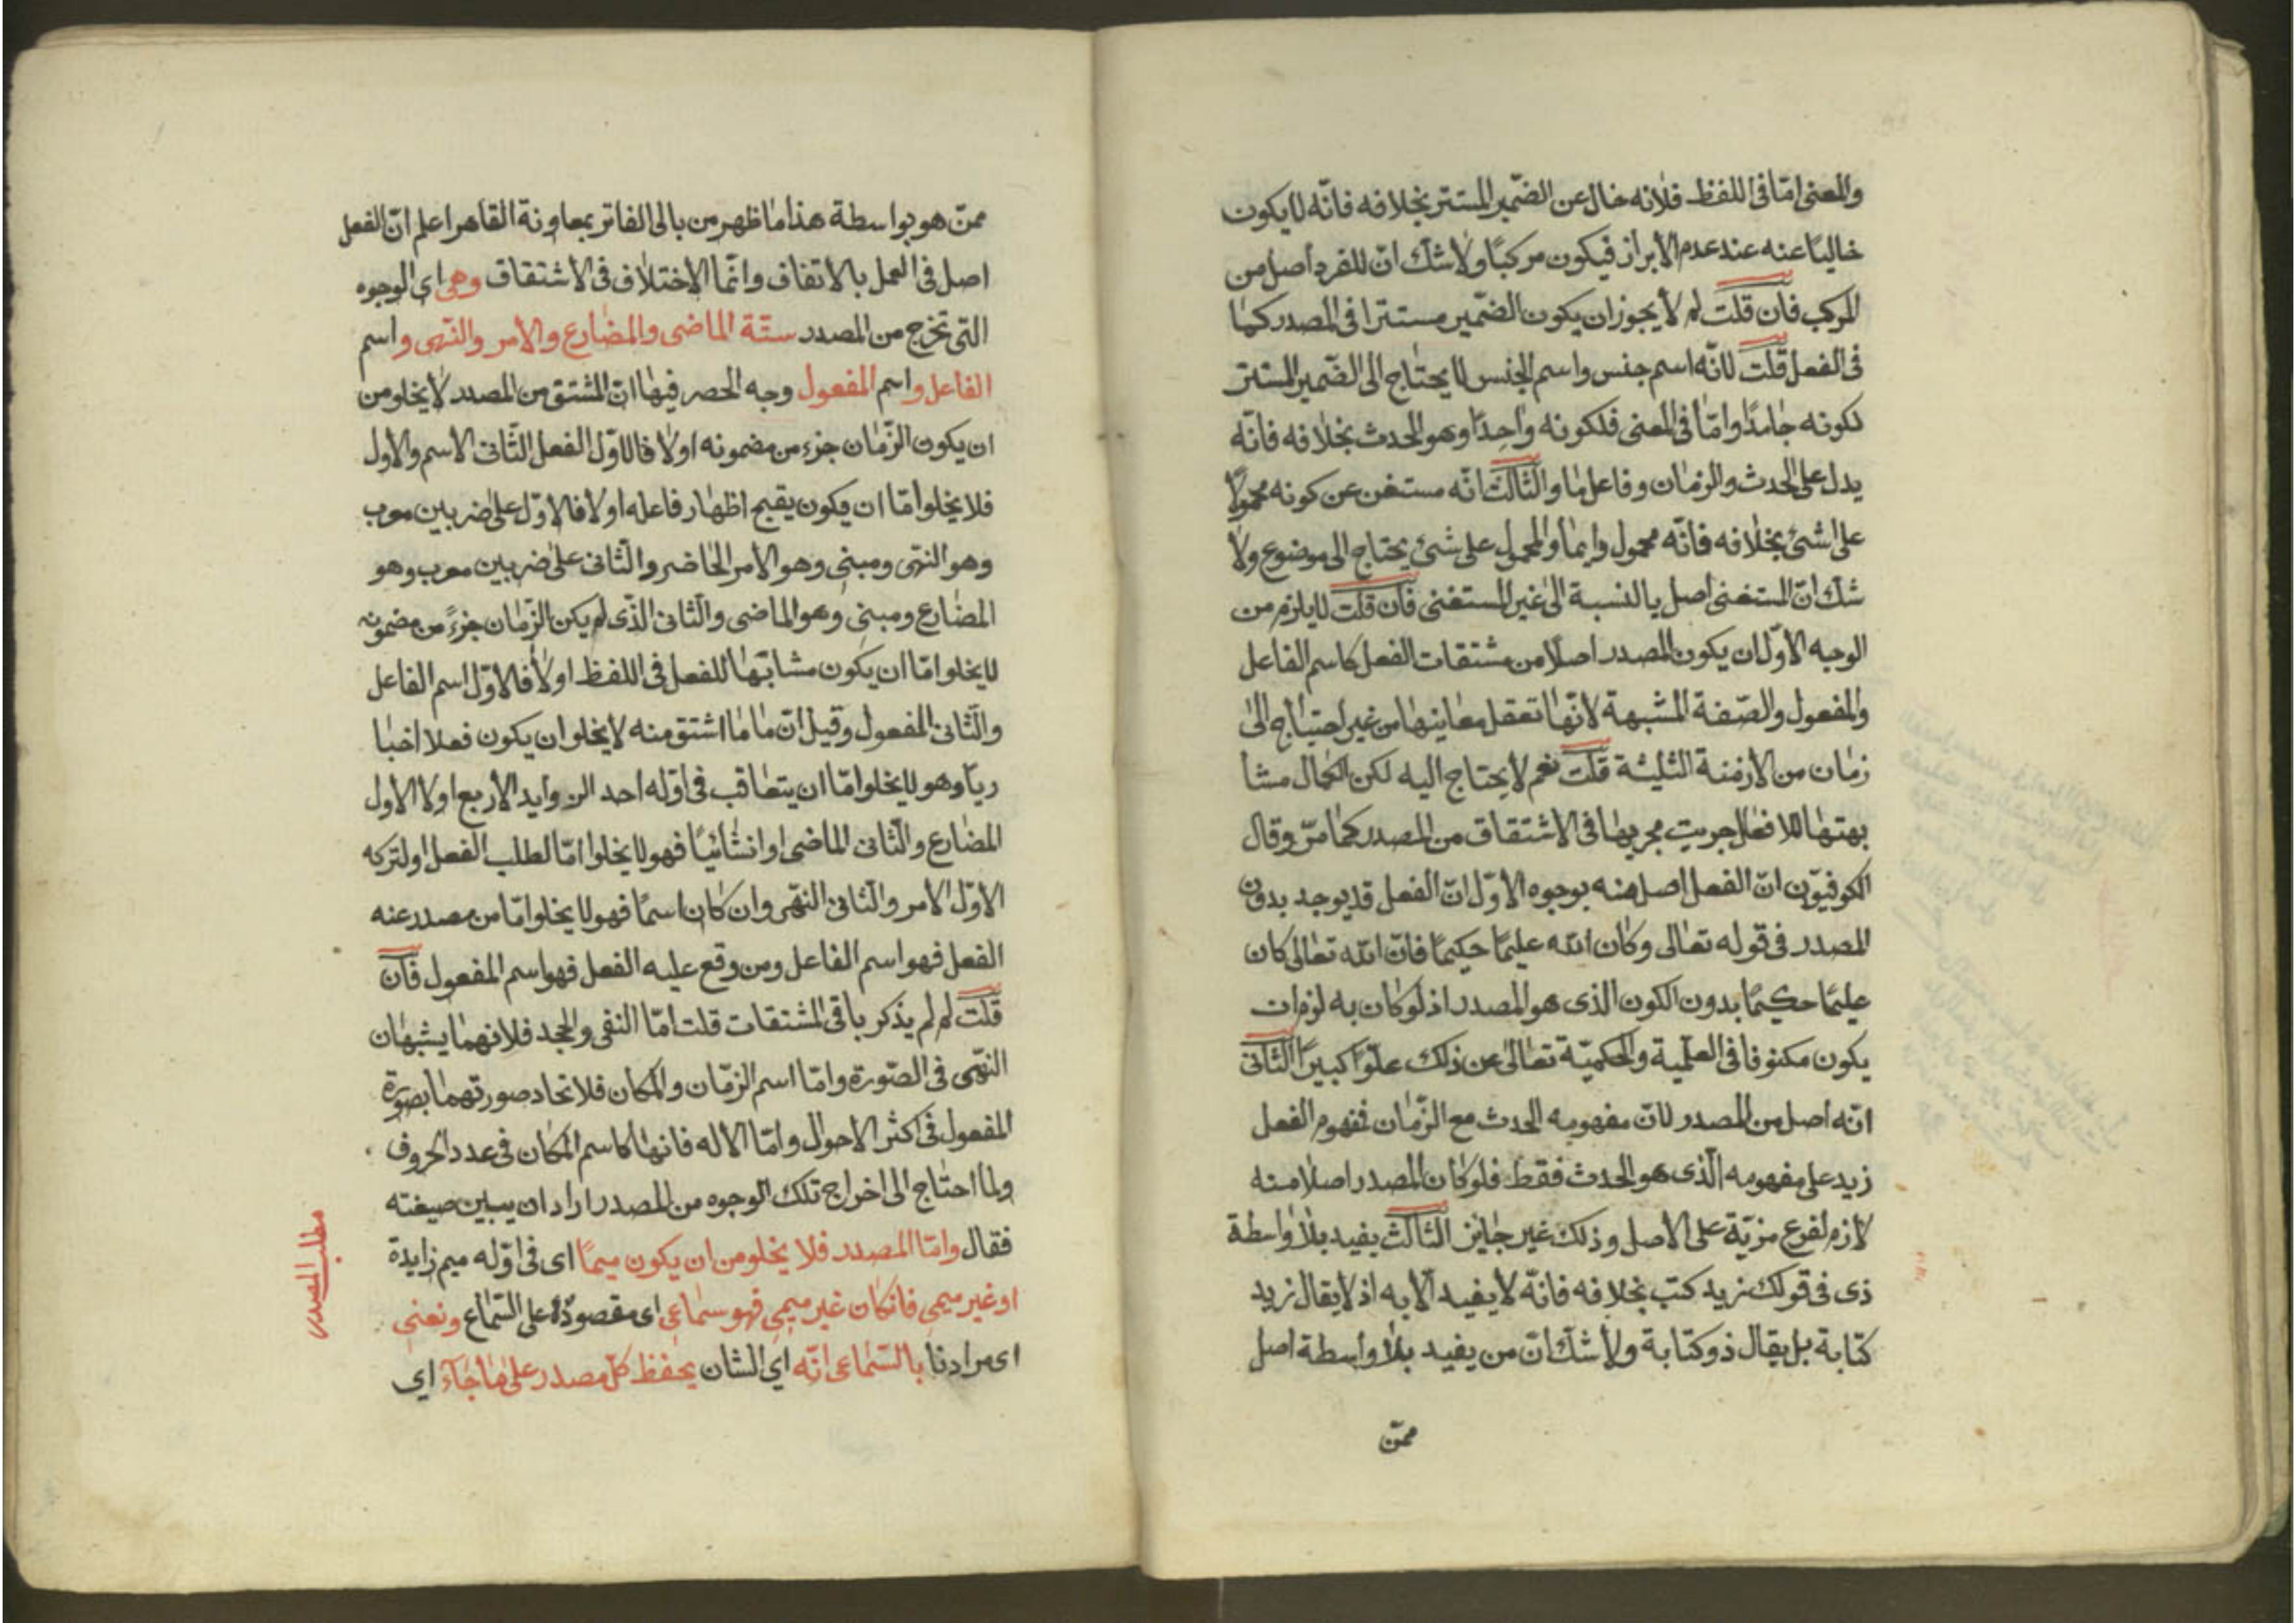 والمعنى امّا فى اللفظ فلانه خال عن الضّمير المستتر بخلافه فانّه لا يكون
خاليًا عنه عند عدم الأبراز فيكون مركبًا ولا شكّ انّ المفرد أصل من
المركب فان قلت لم لا يجوز ان يكون الضّمير مستترا فى المصدر كما
فى الفعل قلت لانّه اسم جنس واسم الجنس لا يحتاج الى الضّمير المستتر
لكونه جامدًا وامّا فى المعنى فلكونه واحِدًا وهو الحدث بخلافه فانّه
يدل على الحدث والزمان وفاعل ما والثّالث انّه مستغن عن كونه محمولًا
على شئ بخلافه فانّه محمول دايما والمحمول على شئ يحتاج الى موضوع ولا
شك انّ المستغنى اصل بالنسبة الى غير المستغنى فان قلت لا يلزم من
الوجه الاوّل ان يكون المصدر اصلًا من مشتقات الفعل كاسم الفاعل
والمفعول والصّفة المشبهة لانّها تعقل معاينها من غير احتياج الى
زمان من الأزمنة الثليثة قلت نعم لا يحتاج اليه لكن الحال مشا
بهتها للافعال جريت مجريها فى الاشتقاق من المصدر كما مرّ وقال
الكوفيّون انّ الفعل اصل منه بوجوه الاوّل انّ الفعل قد يوجد بدون
المصدر فى قوله تعالى وكان الله عليمًا حكيمًا فانّ الله تعالى كان
عليمًا حكيمًا بدون الكون الذى هو المصدر اذ لو كان به لزم ان
يكون مكنوفا فى العلّمية والحكميّة تعالى عن ذلك علوّا كبيرًا الثّانى
انّه اصل من المصدر لانّ مفهومه الحدث مع الزّمان فمفهوم الفعل
زيد على مفهومه الّذى هو الحدث فقط فلو كان المصدر اصلا منه
لازم لفرع مزيّة على الاصل وذلك غير جايز الثّالث يفيد بلا واسطة
ذى فى قولك زيد كتب بخلافه فانّه لا يفيد الّا به اذ لا يقال زيد
كتابة بل يقال ذو كتابة ولا شك انّ من يفيد بلا واسطة اصل
ممّن
ممّن هو بواسطة هذا ما ظهر من بالى الفاتر بمعاونة القاهر اعلم انّ الفعل
اصل فى العمل بالاتفاق وانّما الاختلاف فى الاشتقاق وهى اى الوجوه
التى تخرج من المصدر ستّة الماضى والمضارع والأمر والنّهى واسم
الفاعل واسم المفعول وجه الحصر فيها انّ المشتق من المصدر لا يخلو من
ان يكون الزّمان جزء من مضمونه اولا فالاوّل الفعل الثّانى الاسم والاول
فلا يخلو امّا ان يكون يقبح اظهار فاعله اولا فالاوّل على ضربين معرب
وهو النهّى ومبنى وهو الامر الحاضر والثّانى على ضربين معرب وهو
المضارع ومبنى وهو الماضى والثّانى الذّى لم يكن الزّمان جزءً من مضمونه
لا يخلو امّا ان يكون مشابهًا للفعل فى اللفظ اولا فالاوّل اسم الفاعل
والثّانى المفعول وقيل انّ ما ما اشتق منه لا يخلو ان يكون فعلا اخبا
ريّا وهو لا يخلو امّا ان يتعاقب فى اوّله احد الزوايد الأربع اولا الاول
المضارع والثّانى الماضى او انشائيًا فهو لا يخلوا امّا لطلب الفعل او لتركه
الاوّل الامر والثّانى النهّى وان كان اسمًا فهو لا يخلوا امّا من مصدر عنه
الفعل فهو اسم الفاعل ومن وقع عليه الفعل فهو اسم المفعول فان
قلت لم لم يذكر باقى المشتقات قلت امّا النفى والجحد فلانهما يشبهان
النّهى فى الصّورة وامّا اسم الزمّان والمكان فلاتحاد صورتهما بصورة
المفعول فى اكثر الاحوال وامّا الأله فانها كاسم المكان فى عدد الحروف
ولما احتاج الى اخراج تلك الوجوه من المصدر اراد ان يبين صيغته
فقال وامّا المصدر فلا يخلو من ان يكون ميمًا اى فى اوّله ميم زايدة
او غير ميمى فانكان غير ميمى فهو سماعى اى مقصودة على السّماع ونعنى
اى مرادنا بالسّماعى انّه اي الشان يحفظ كلّ مصدر على ما جاء اى
مطلب المصدر